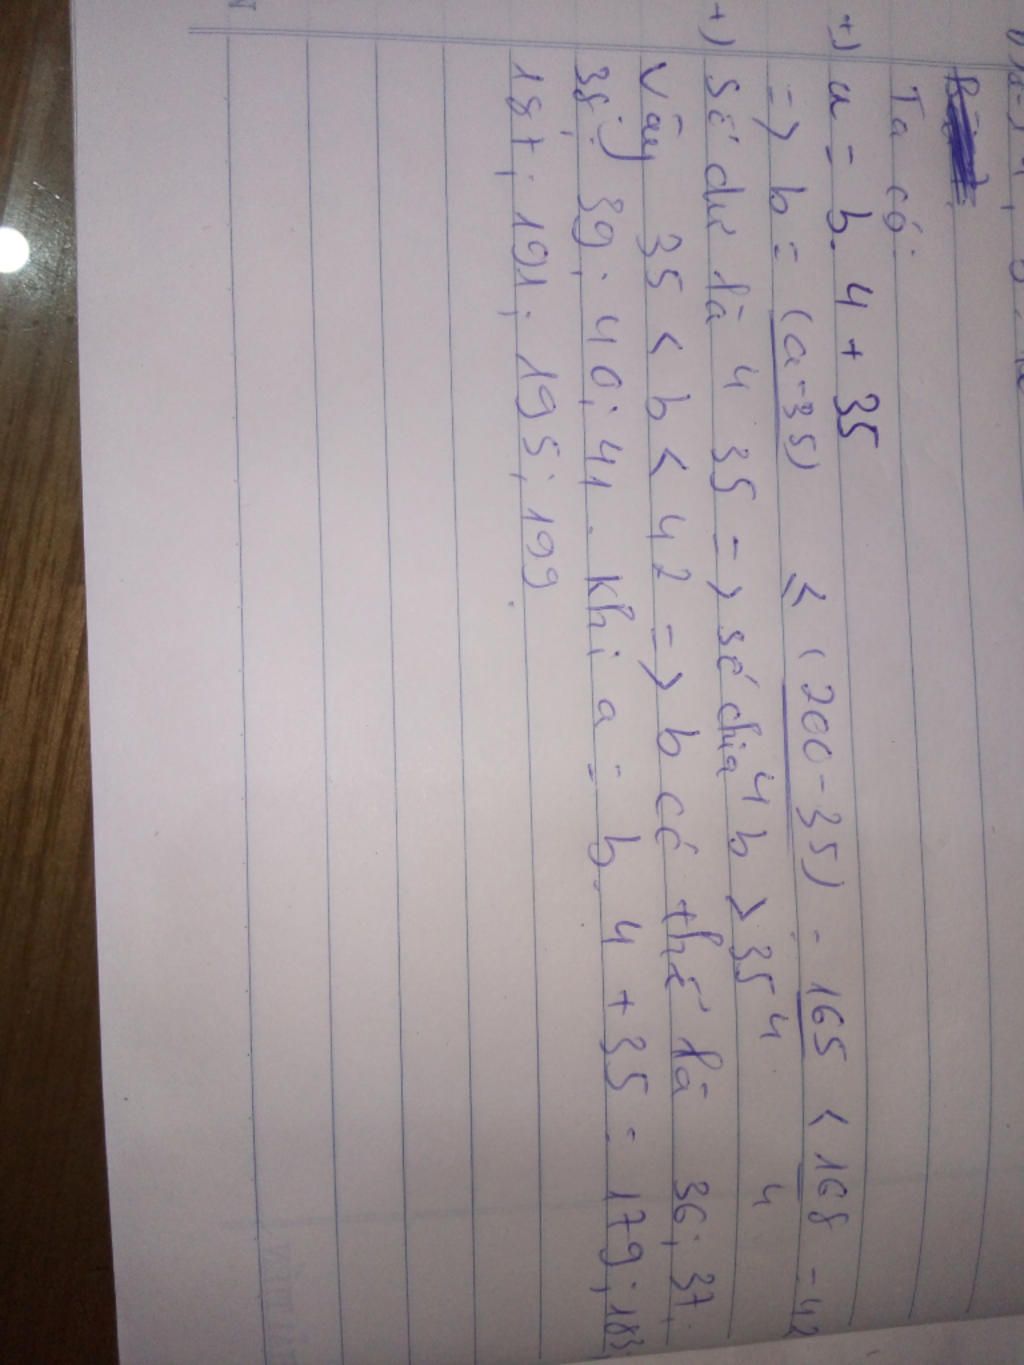 Ta có:
+) a = b. 4 + 35
=> b = (a-35) ≤ (200-35) = 165 < 168 = 42
4 4 4 4
+) Số dư là 35 => số chia b > 35
Vậy 35 < b < 42 => b có thể là 36; 37;
38; 39; 40; 41. Khi a = b. 4 + 35 = 179; 183;
187; 191; 195; 199.